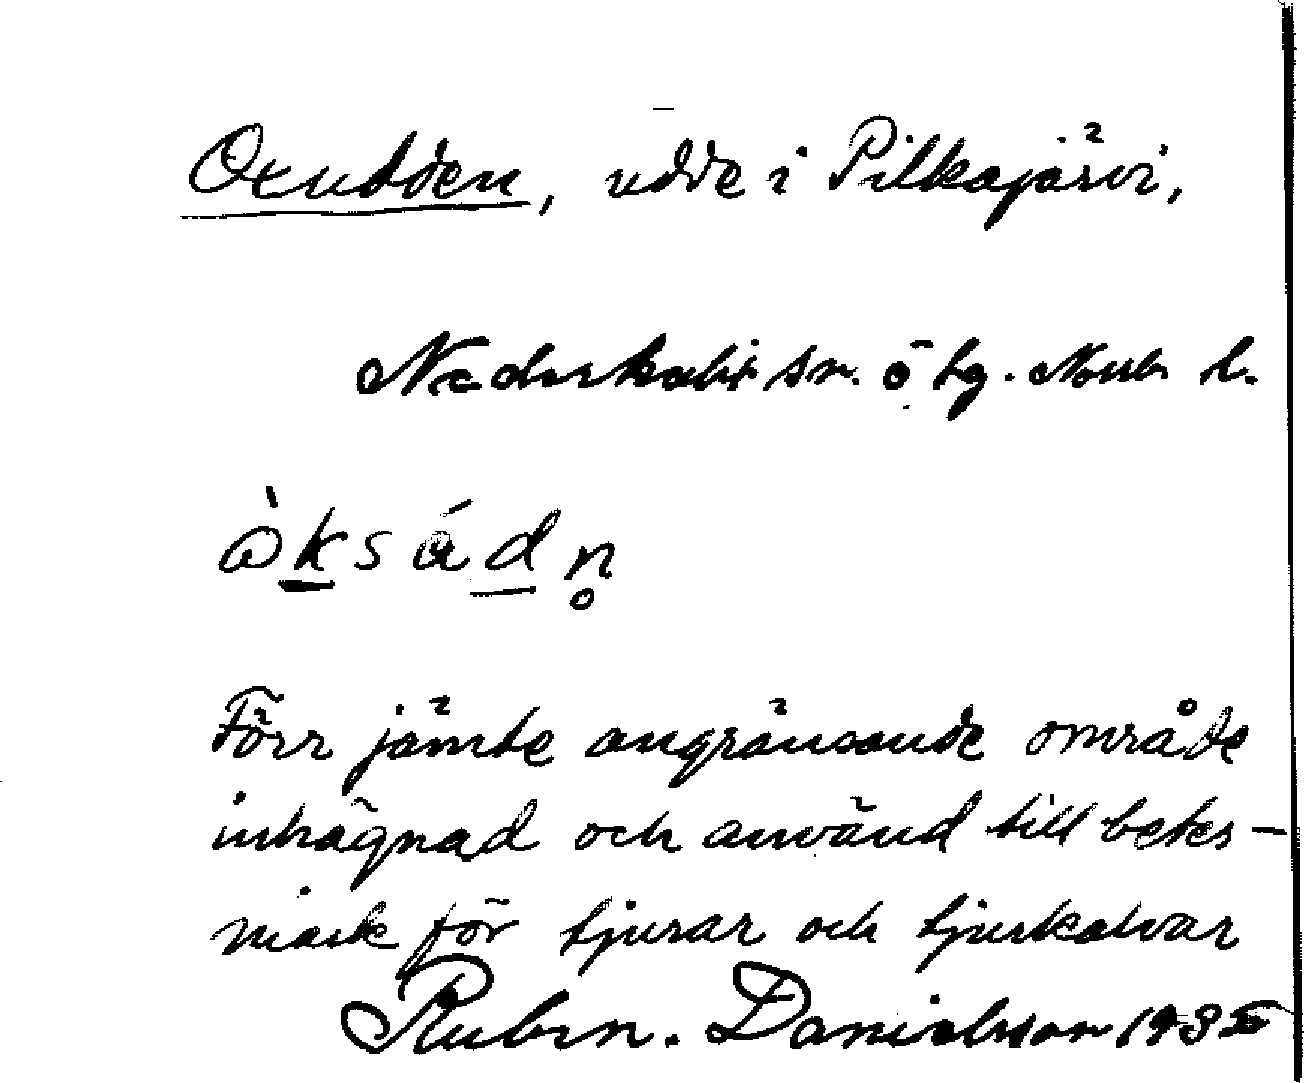 Oxudden, udde i Pilkajärvi,
Nederkalix sn. ö tg. Norrb. l.
òksádn̥
Förr jämte angränsande område
inhägnad och använd till betes-
mark för tjurar och tjurkalvar
Ruben. Danielsson 1935